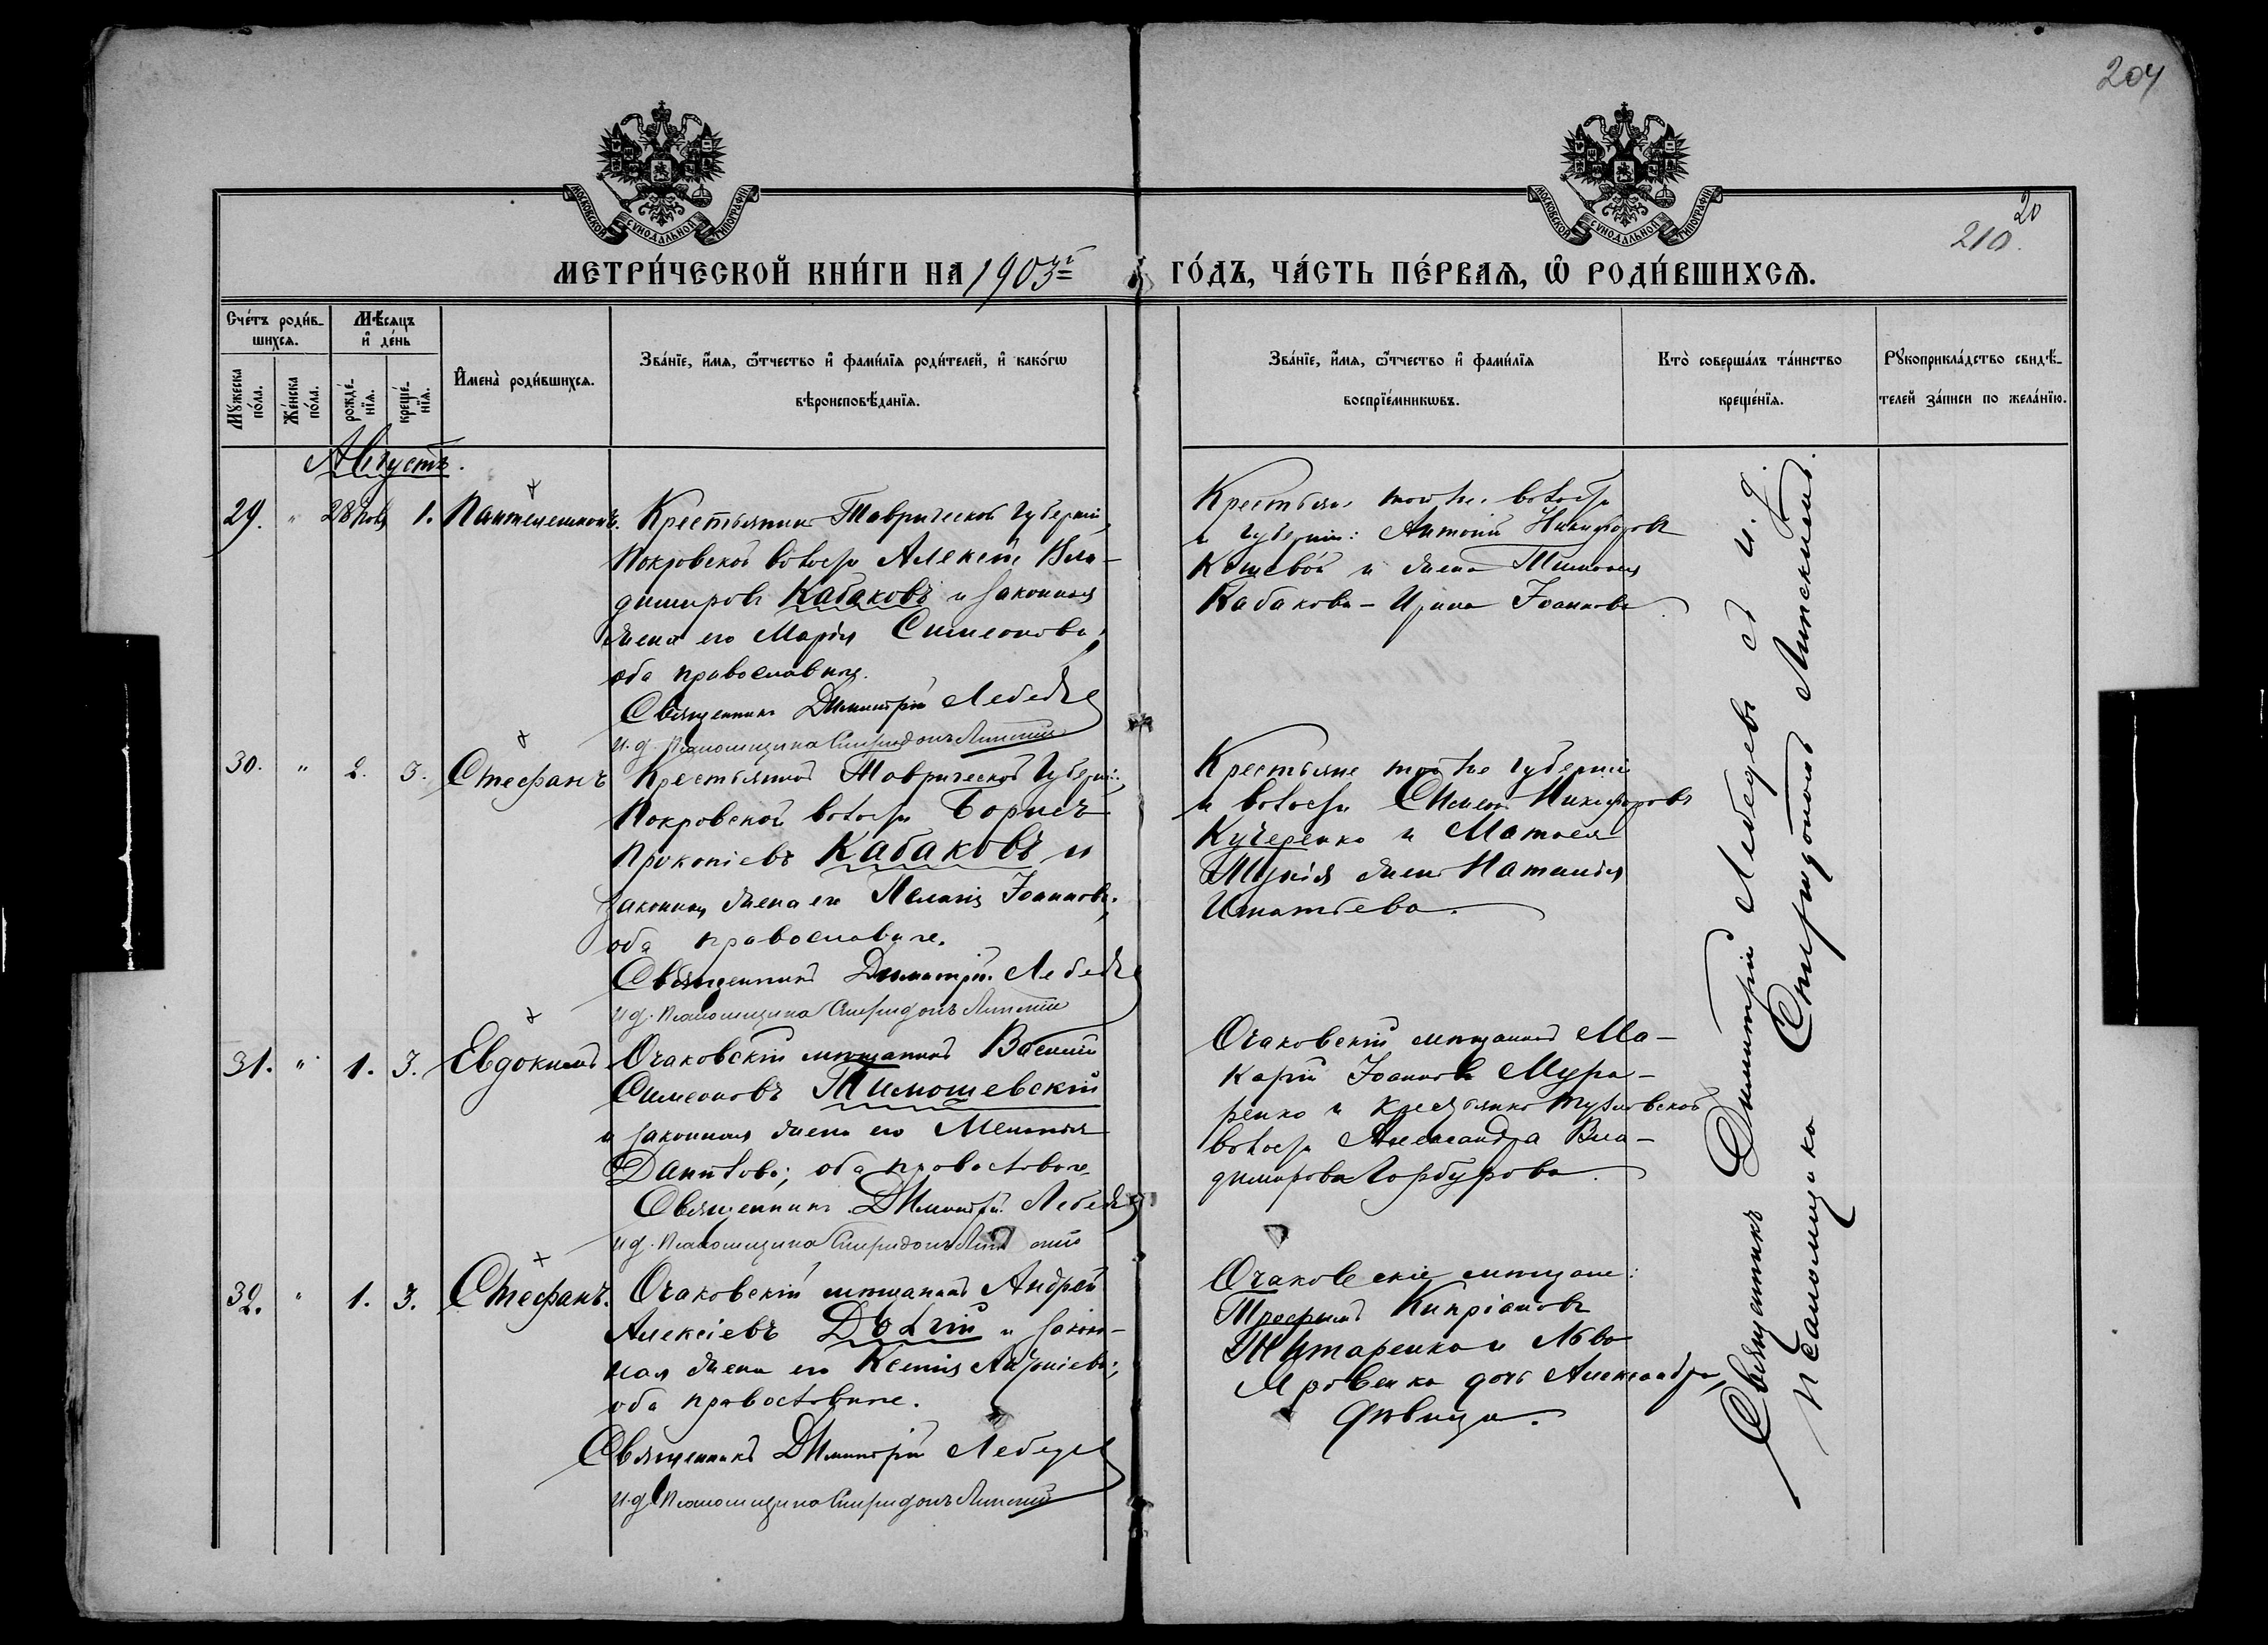 204
20
210.
МОСКОВСКОЙ СѴНОДАЛЬНОЙ ТИПОГРАФІИ
МОСКОВСКОЙ СѴНОДАЛЬНОЙ ТИПОГРАФІИ
МЕТРИ́ЧЕСКОЙ КНИ́ГИ НА 1903й
ГО́ДЪ, ЧА́СТЬ ПЕ́РВАѦ, Ѡ РОДИ́ВШИХСѦ.
Сче́тъ роди́в-
шихсѧ.
Мꙋжеска по́ла.
Же́нска по́ла.
Мѣ́сѧцъ
и҆ де́нь
рожде́-нїѧ.
креще́-нїѧ.
И҆мена̀ роди́вшихсѧ.
Зва́нїе, и҆́мѧ, ѻ҆́тчество и҆ фами́лїѧ роди́телей, и҆ како́гѡ
вѣроисповѣ́данїѧ.
Зва́нїе, и҆́мѧ, ѻ҆́тчество и҆ фами́лїѧ
воспрїе́мникѡвъ.
Кто̀ соверша́лъ та́инство
креще́нїѧ.
Рꙋкоприкла́дство свидѣ́-
телей за́писи по жела́нїю.
Августъ.
29. " 28 1. Пантелеимонъ.
Крестьянинъ Таврической губерніи
Покровской волости Алексій Вла-
диміровъ Кабаковъ и законная
жена его Марія Симеонова,
оба православные.
Священникъ Димитрій Лебедевъ
И.д. Псаломщика Спиридонъ Липскій
Крестьяне той же волости
и губерніи: Антоній Никифоровъ
Кошевой и жена Тимофея
Кабакова - Ирина Іоаннова
30. " 2. 3. Стефанъ
Крестьянинъ Таврической губерніи,
Покровской волости Борисъ
Прокопіевъ Кабаковъ и
законная жена его Пелагія Іоаннова,
оба православные.
Священникъ Димитрій Лебедевъ
И.д. Псаломщика Спиридонъ Липскій
Крестьяне той же губерніи
и волости Симеонъ Никифоровъ
Кучеренко и Матвея
жена Наталія
Игнатьева.
31. " 1. 3. Евдокимъ
Очаковскій мѣщанинъ Василій
Симеоновъ Тимошевскій
и законная жена его Меланія
Даніилова; оба православные
Священникъ Димитрій Лебедевъ
И.д. Псаломщика Спиридонъ Липскій
Очаковскій мѣщанинъ Ма-
карій Іоанновъ Мура-
ренко и крестьянка Тузловской
волости Александра Вла-
димірова Горбурова.
32. " 1. 3. Стефанъ.
Очаковскій мѣщанинъ Андрей
Алексіевъ Долгій и закон-
ная жена его Ксенія
оба православные.
Священникъ Димитрій Лебедевъ
И.д. Псаломщика Спиридонъ Липскій
Очаковскіе мѣщане:
Трофимъ Кипріановъ
Титаренко и Льва
Яровенка дочь Александра,
дѣвица.
Священникъ Димитрій Лебедевъ съ и. д.
Псаломщика Спиридономъ Липскимъ.